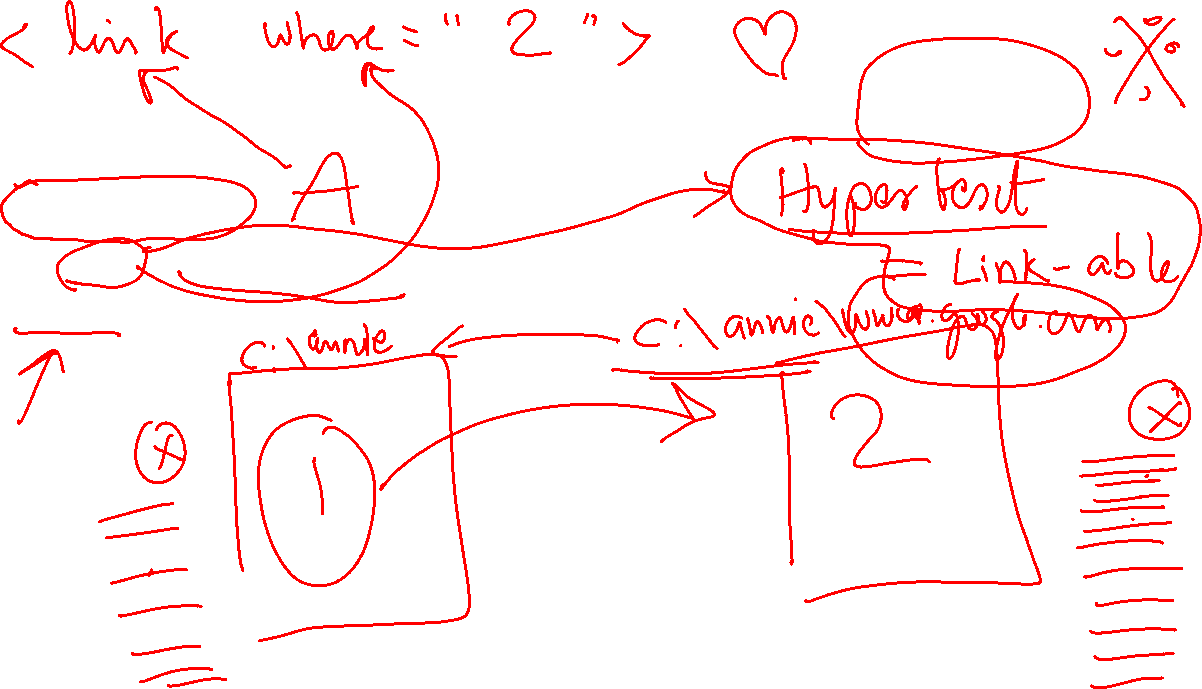 < link where = " 2 ">
A
Hypertext
= Link-able
C:\annie
C:\annie\www.google.com
1
2
x
x